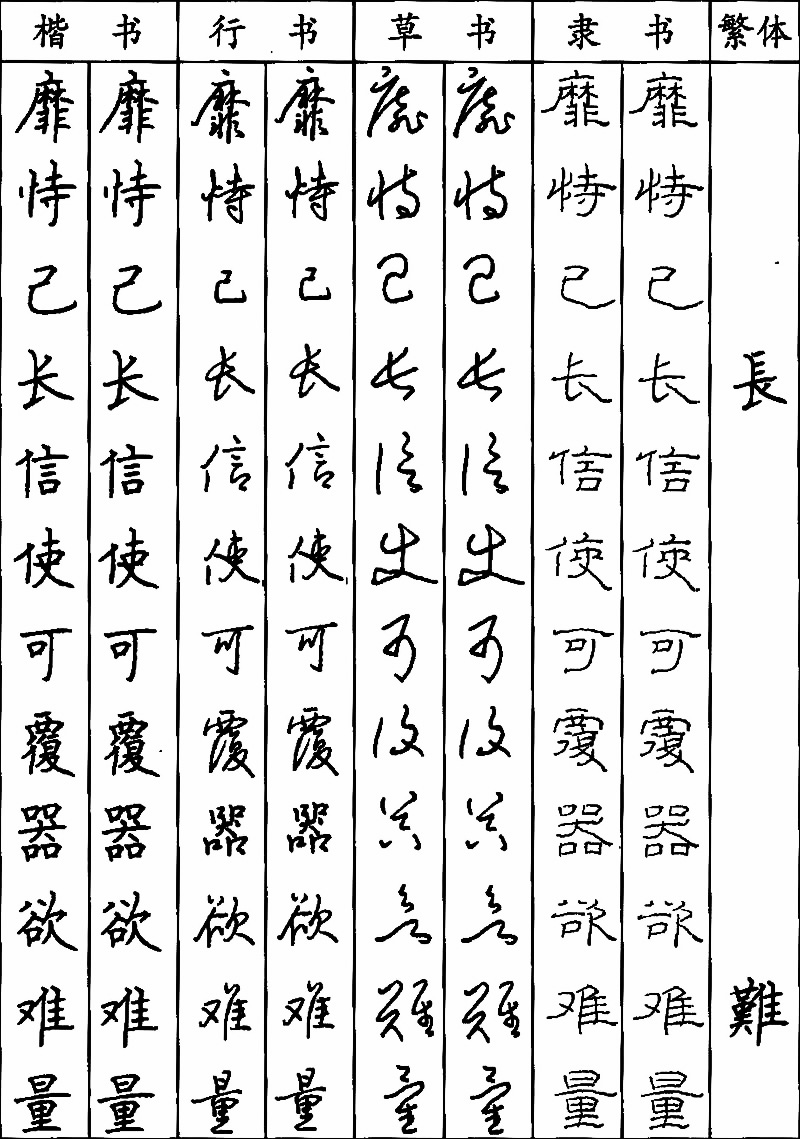 楷书 行书 草书 隶书 繁体
靡 靡 靡 靡 靡 靡 靡 靡
恃 恃 恃 恃 恃 恃 恃 恃
己 己 己 己 己 己 己 己
长 长 长 长 长 长 长 长 長
信 信 信 信 信 信 信 信
使 使 使 使 使 使 使 使
可 可 可 可 可 可 可 可
覆 覆 覆 覆 覆 覆 覆 覆
器 器 器 器 器 器 器 器
欲 欲 欲 欲 欲 欲 欲 欲
难 难 难 难 难 难 难 难 難
量 量 量 量 量 量 量 量